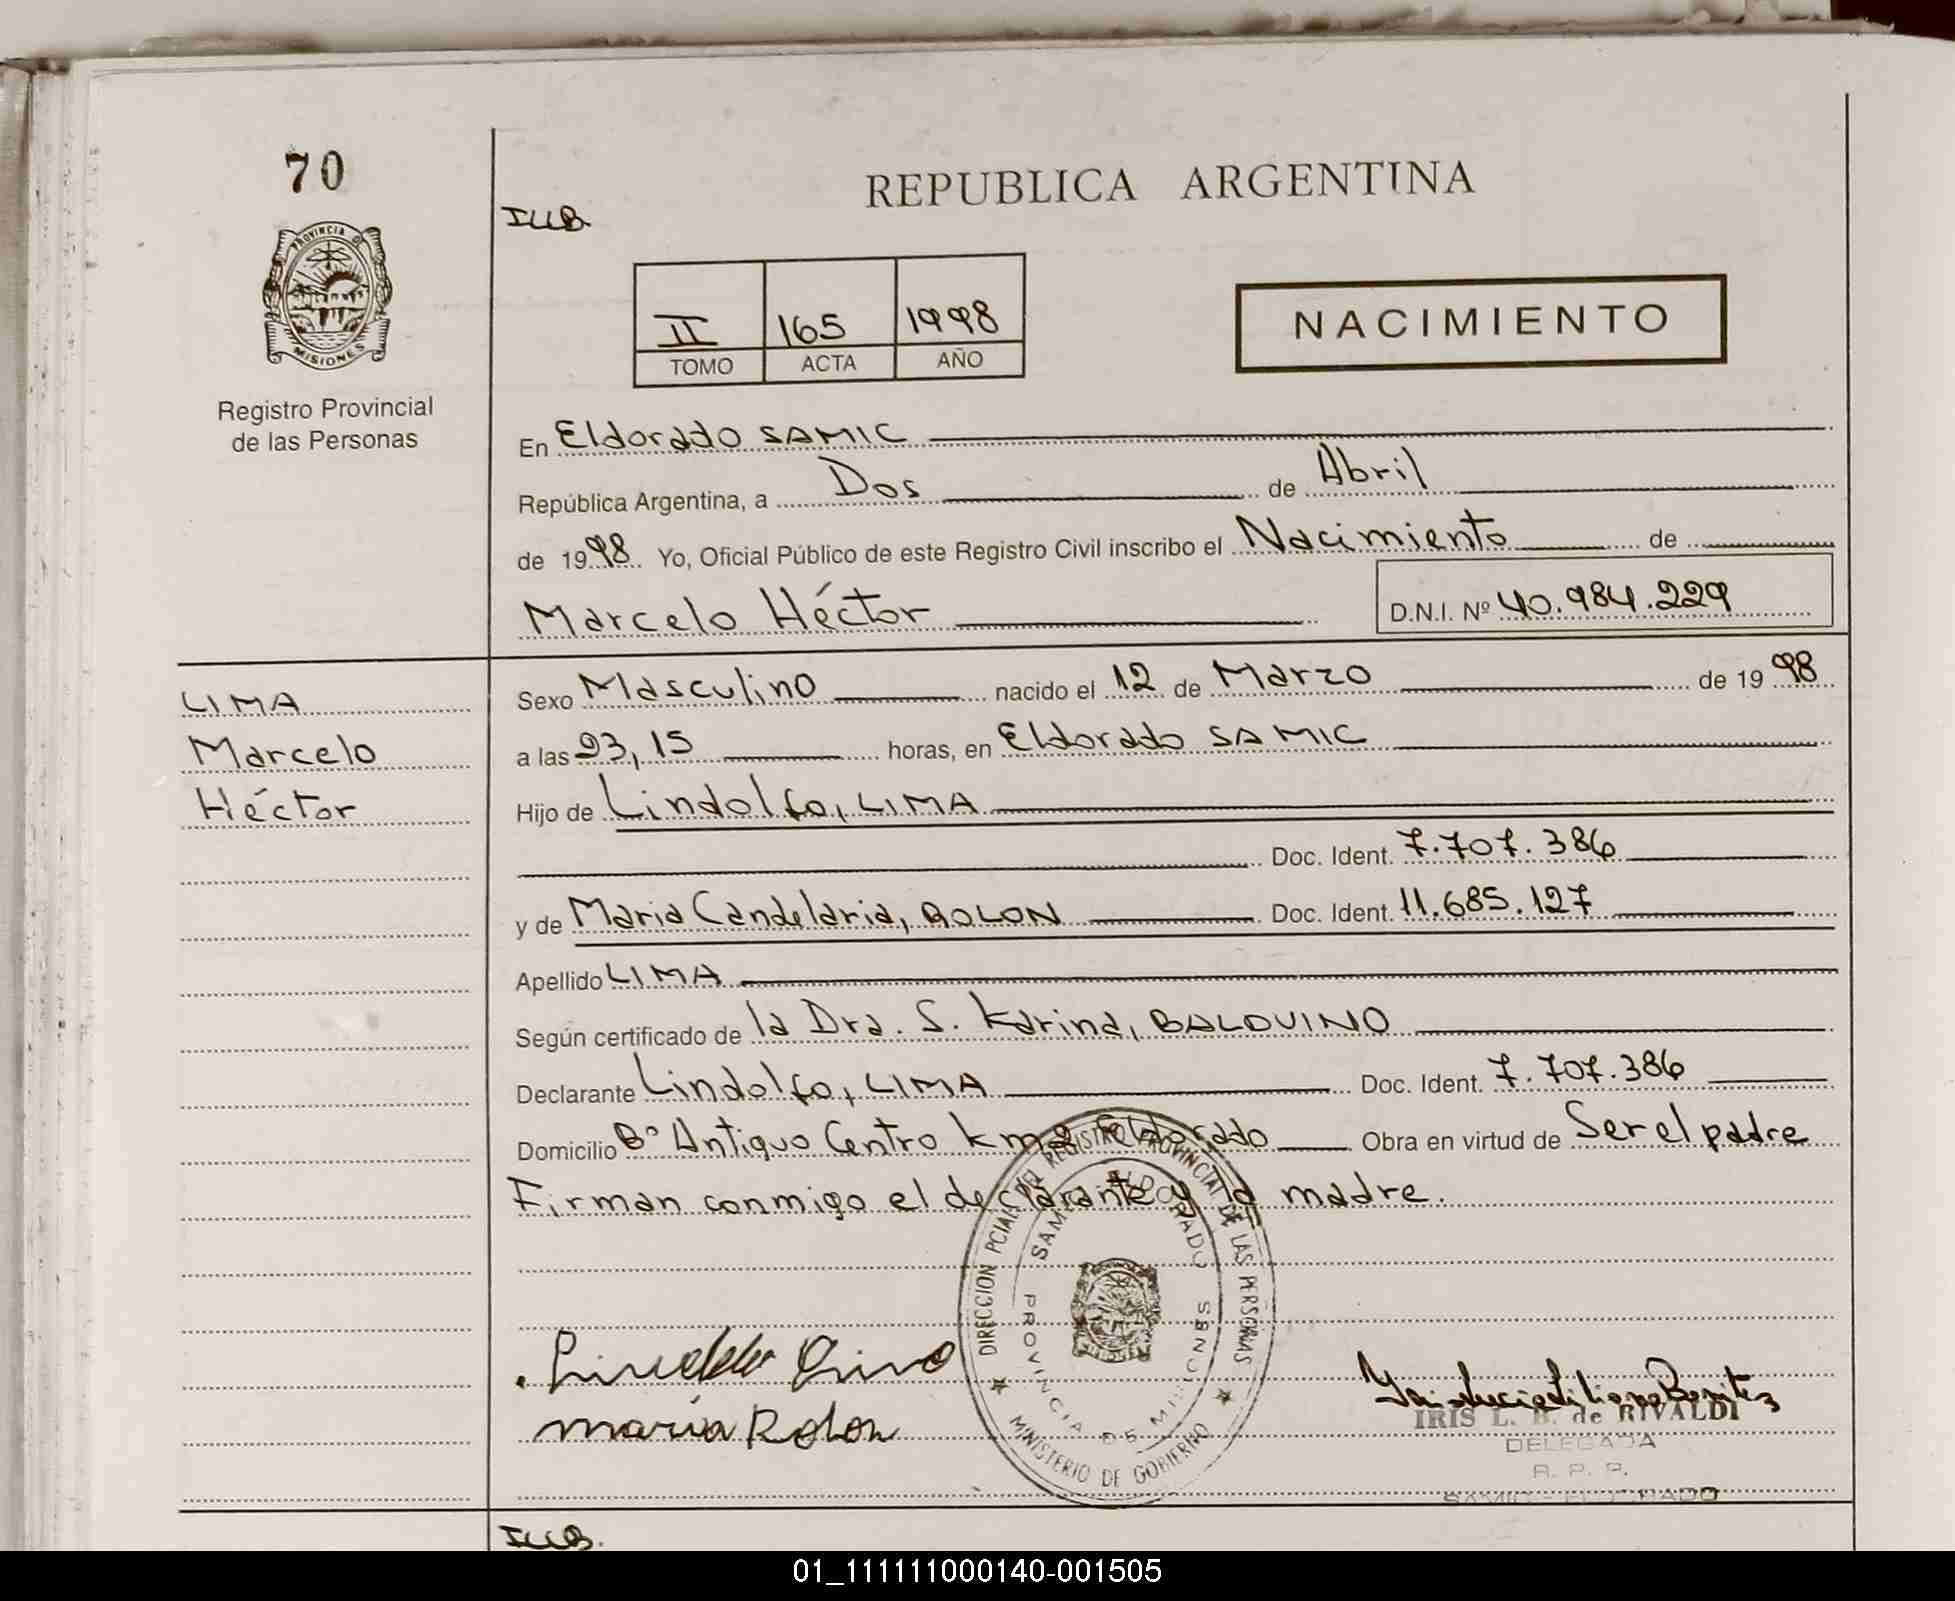 70
PROVINCIA DE
MISIONES
Registro Provincial
de las Personas
REPUBLICA ARGENTINA
II 165 1998
TOMO ACTA AÑO
NACIMIENTO
En Eldorado SAMIC
República Argentina, a Dos de Abril
de 1998 Yo, Oficial Público de este Registro Civil inscribo el Nacimiento de
Marcelo Héctor D.N.I. Nº 40.984.229
LIMA
Marcelo
Héctor
Sexo Masculino nacido el 12 de Marzo de 1998
a las 23,15 horas, en Eldorado SAMIC
Hijo de Lindolfo, LIMA
Doc. Ident. 7.707.386
y de Maria Candelaria, ROLON Doc. Ident. 11.685.127
Apellido LIMA
Según certificado de la Dra. S. Karina, BALDUINO
Declarante Lindolfo, LIMA Doc. Ident. 7.707.386
Domicilio Bº Antiguo Centro Km 2 Eldorado Obra en virtud de Ser el padre
Firman conmigo el declarante y la madre.
DIRECCION PCIAL DEL REGISTRO PROVINCIAL DE LAS PERSONAS
MINISTERIO DE GOBIERNO
SAMIC ELDORADO
PROVINCIA DE MISIONES
maria Rolon
IRIS L. B. de RIVALDI
DELEGADA
R. P. P.
SAMIC - ELDORADO
01_111111000140-001505